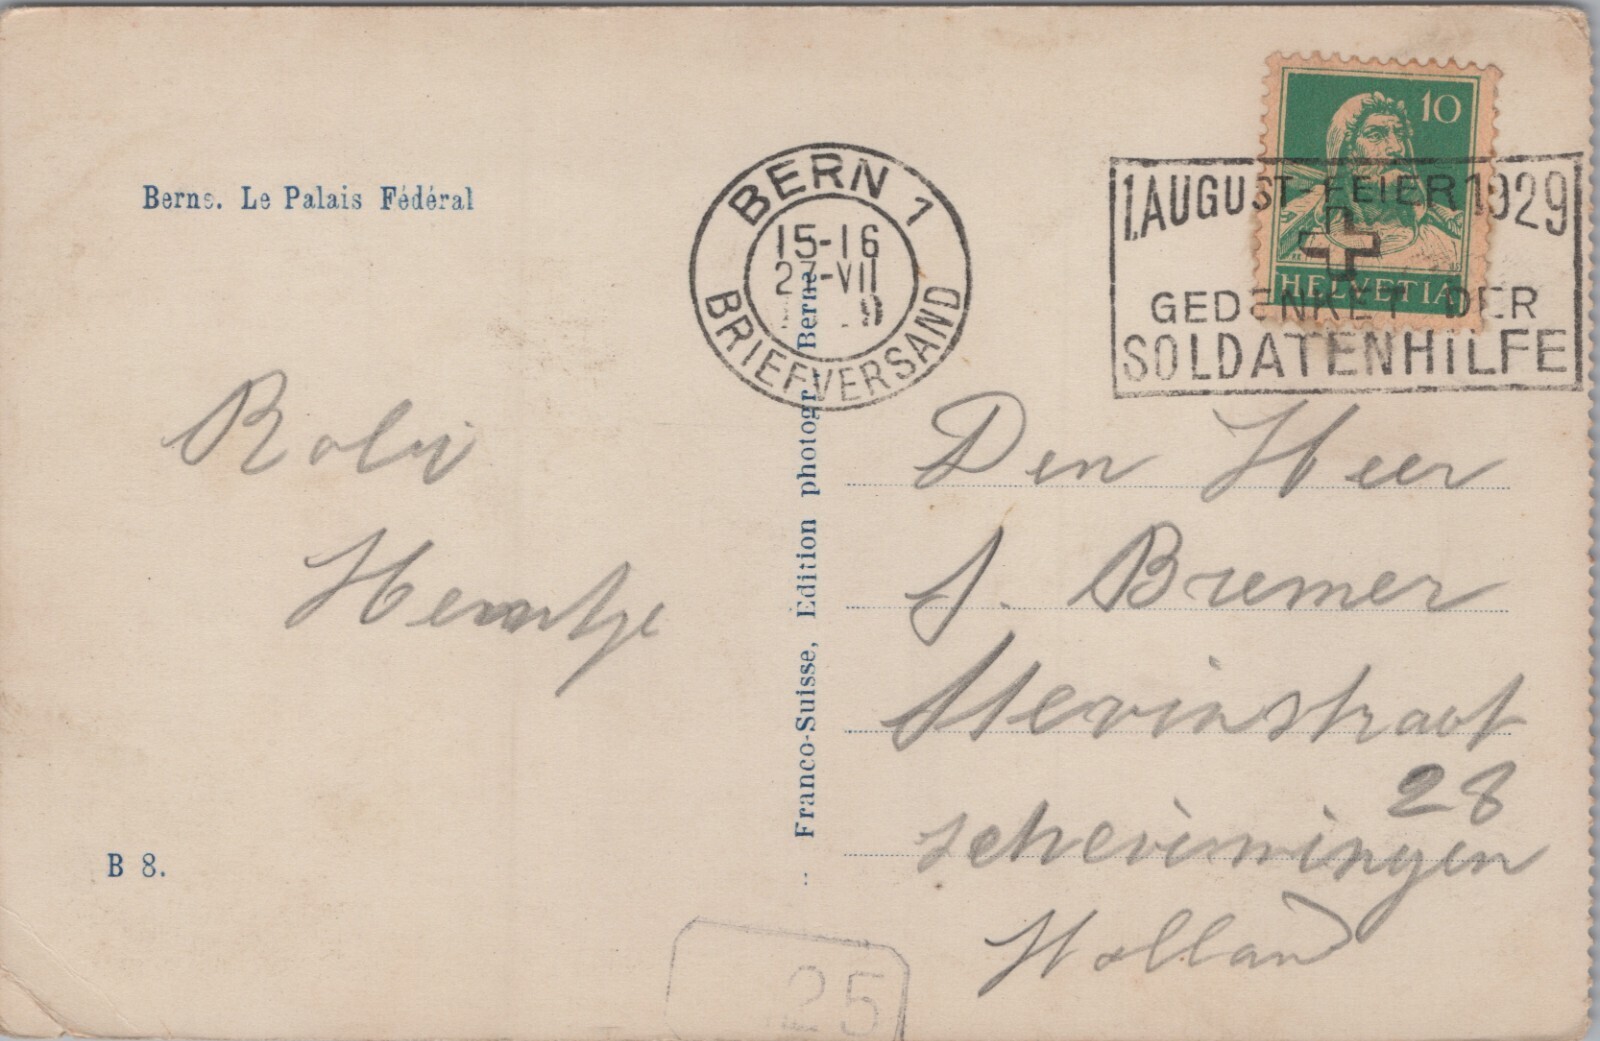 Berne. Le Palais Fédéral
BERN 1
15-16
-VII
BRIEFVERSAND
10
HELVETIA
1. AUGUST-FEIER 1929
GEDENKET DER
SOLDATENHILFE
Franco-Suisse, Edition photogr. Berne
Den Heer
J. Bremer
Stevinstraat
28
Scheveningen
Holland
B 8.
25